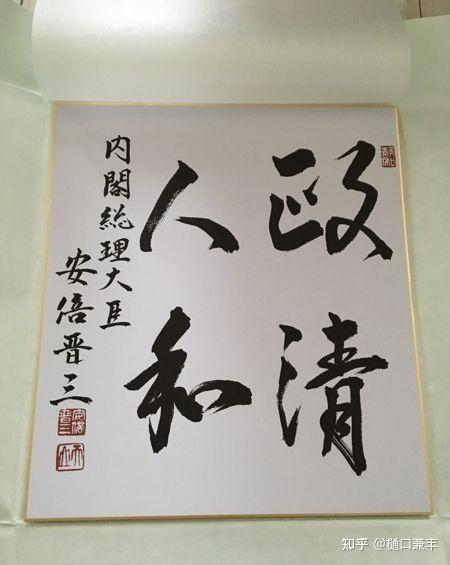 政清
人和
内閣総理大臣
安倍晋三
知乎 @樋口兼丰